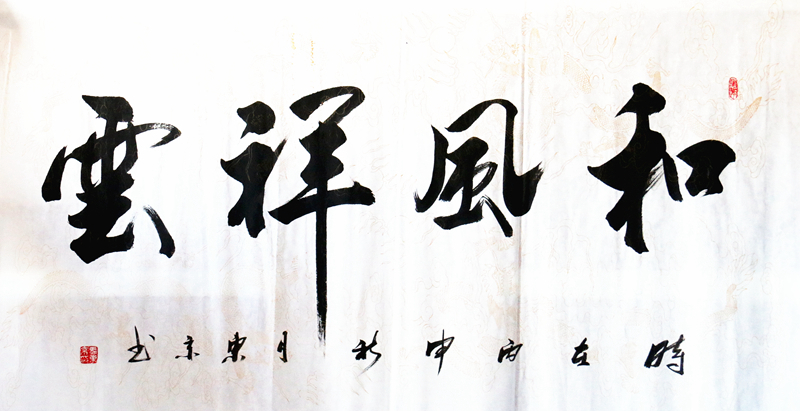 和風祥雲
時在丙申秋月東京书